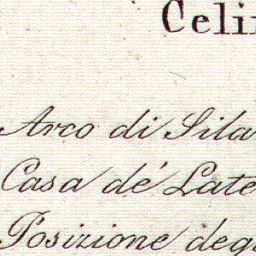 Celi
Arco di Sila
Casa de' Late
Posizione deg